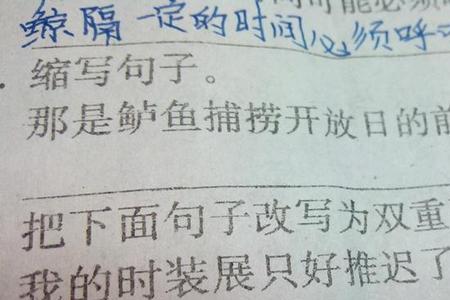 鲸隔一定的时间必须呼
缩写句子。
那是鲈鱼捕捞开放日的前
把下面句子改写为双重
我的时装展只好推迟了